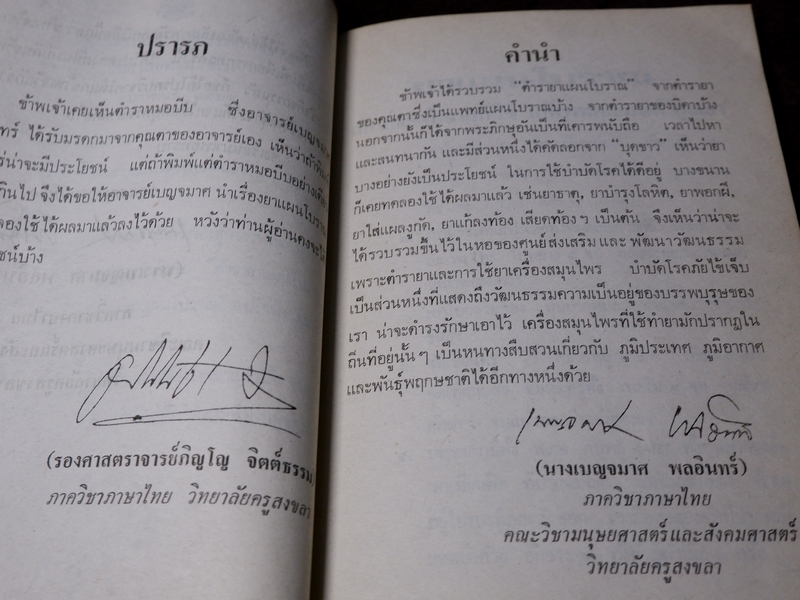 ปรารภ
ข้าพเจ้าเคยเห็นตำราหมอบีบ ซึ่งอาจารย์เบญจมาศ
ทร์ ได้รับมรดกมาจากคุณตาของอาจารย์เอง เห็นว่าถ้า
น่าจะมีประโยชน์ แต่ถ้าพิมพ์แต่ตำราหมอบีบอย่างเดียว
กินไป จึงได้ขอให้อาจารย์เบญจมาศ นำเรื่องยาแผนโบราณ
ลองใช้ได้ผลมาแล้วลงไว้ด้วย หวังว่าท่านผู้อ่านคงจะได้
ชน์บ้าง
(รองศาสตราจารย์ภิญโญ จิตต์ธรรม
ภาควิชาภาษาไทย วิทยาลัยครูสงขลา
คำนำ
ข้าพเจ้าได้รวบรวม "ตำรายาแผนโบราณ" จากตำรายา
ของคุณตาซึ่งเป็นแพทย์แผนโบราณบ้าง จากตำรายาของบิดาบ้าง
นอกจากนั้นก็ได้จากพระภิกษุอันเป็นที่เคารพนับถือ เวลาไปหา
และสนทนากัน และมีส่วนหนึ่งได้คัดลอกจาก "บุดขาว" เห็นว่ายา
บางอย่างยังเป็นประโยชน์ ในการใช้บำบัดโรคได้ดีอยู่ บางขนาน
ก็เคยทดลองใช้ได้ผลมาแล้ว เช่นยาธาตุ, ยาบำรุงโลหิต, ยาพอกฝี,
ยาใส่แผลงูกัด, ยาแก้ลงท้อง เสียดท้อง ๆ เป็นต้น จึงเห็นว่าน่าจะ
ได้รวบรวมขึ้นไว้ในหอของศูนย์ส่งเสริม และ พัฒนาวัฒนธรรม
เพราะตำรายาและการใช้ยาเครื่องสมุนไพร บำบัดโรคภัยไข้เจ็บ
เป็นส่วนหนึ่งที่แสดงถึงวัฒนธรรมความเป็นอยู่ของบรรพบุรุษของ
เรา น่าจะดำรงรักษาเอาไว้ เครื่องสมุนไพรที่ใช้ทำยามักปรากฏใน
ถิ่นที่อยู่นั้น ๆ เป็นหนทางสืบสวนเกี่ยวกับ ภูมิประเทศ ภูมิอากาศ
และพันธุ์พฤกษชาติได้อีกทางหนึ่งด้วย
(นางเบญจมาศ พลอินทร์)
ภาควิชาภาษาไทย
คณะวิชามนุษยศาสตร์และสังคมศาสตร์
วิทยาลัยครูสงขลา